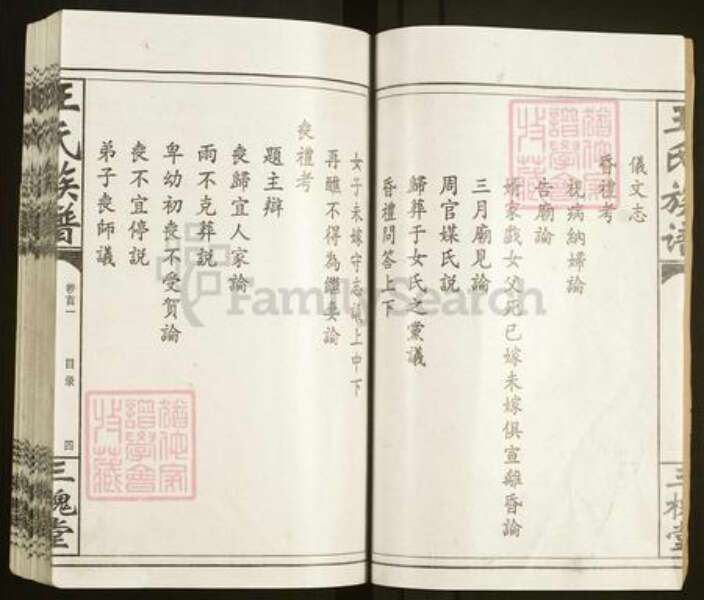 儀文志
昏禮考
視病納婦論
告廟論
婿家戲女父死已嫁未嫁俱宣離昏論
三月廟見論
周官媒氏說
歸葬于女氏之黨議
昏禮問答上下
女子未嫁守志議上中下
再醮不得為繼妻論
喪禮考
題主辯
喪歸宜人家論
雨不克葬說
卑幼初喪不受賀論
喪不宜停說
弟子喪師議
王氏族譜
卷首一
目录
四
三槐堂
王氏族譜
三槐堂
FamilySearch